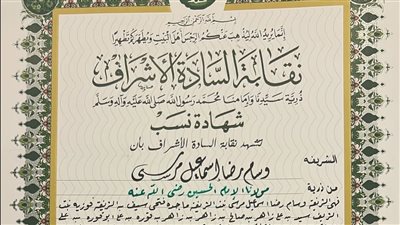 بسم الله الرحمن الرحيم
إنما يريد الله ليذهب عنكم الرجس أهل البيت ويطهركم تطهيرا
نقابة السادة الأشراف
ذرية سيدنا وإمامنا محمد رسول الله صلى الله عليه وآله وسلم
شهادة نسب
تشهد نقابة السادة الأشراف بأن
الشريفة
وسام رضا اسماعيل مرسى
من ذرية مولانا الإمام الحسين رضى الله عنه
فهى الشريفة وسام رضا اسماعيل مرسى